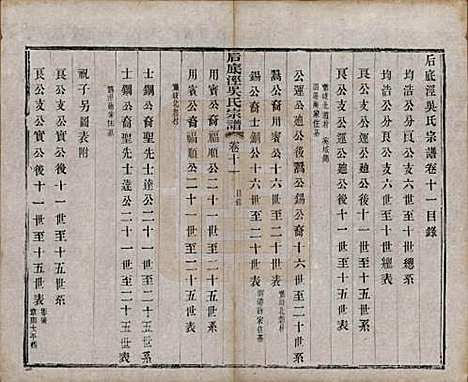 后底涇吳氏宗譜卷十一目錄
均浩公分良公支六世至十六世總系
均浩公分良公支六世至十六世總表
良公支公運公迪公後十一世至十五世系
良公支公運公迪公後十一世至十五世表
公運公迪公後翯公錫公裔十六世至二十世系
翯公裔十六世至二十
錫公裔士鋼公十六世至二十世表
后底涇吳氏宗譜
卷十一
目錄
用賓公裔福順公二十一世至二十五世系
用賓公裔福順公二十一世至二十五世表
士鋼公裔聖先公士達公二十一世至二十五世系
士鋼公裔聖先公士達公二十一世至二十五世表
祝子另圖表附
良公支公實公後十一世至十五世系
良公支公實公後十一世至十五世表